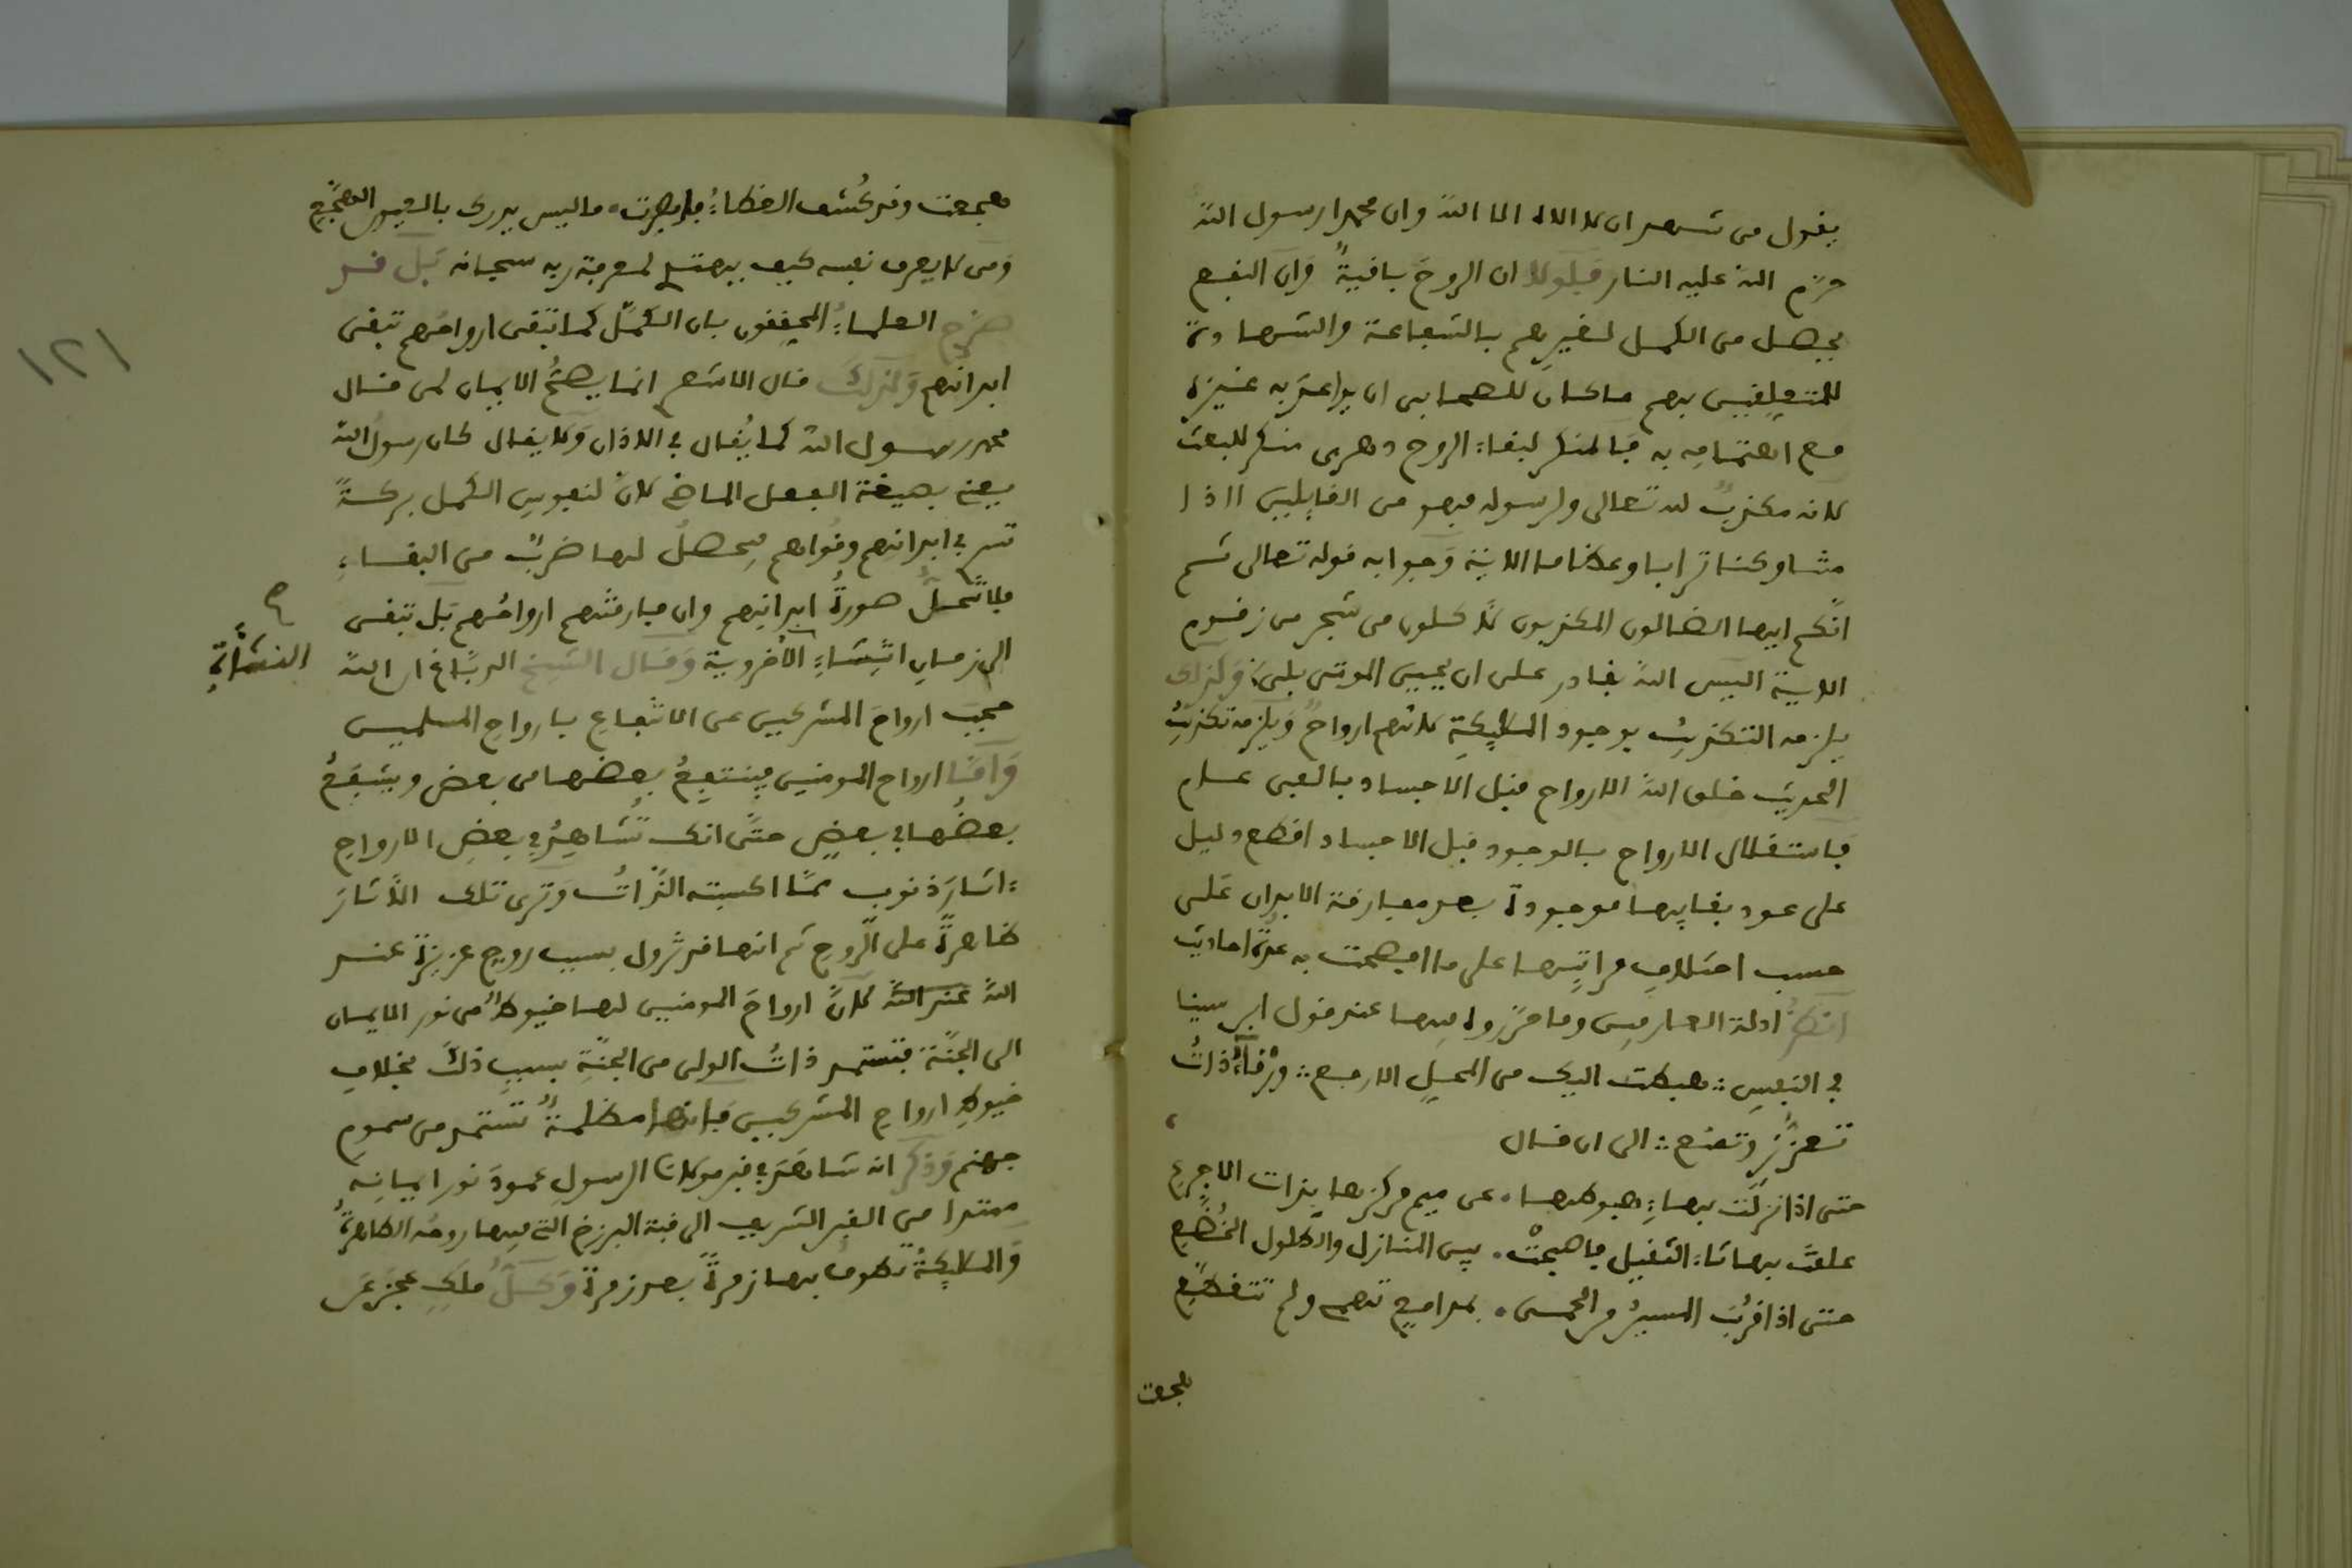 يقول من شهد ان لا اله الا الله وان محمدا رسول الله
حرّم الله عليه النار فلولا ان الروح باقيةٌ وان النفع
يحصل من الكمل لغيرهم بالشفاعة والشهادة
للمتعلقين بهم ماكان للصحابى ان يراعىَ به غيره
مع اهتمامه به فالمنكر لبقاء الروح دهرى منكر للبعث
لانه مكذبٌ لله تعالى ولرسوله فهو من القايلين ااذا
متنا وكنا ترابا وعظاما الاية وجوابه قوله تعالى ثم
انّكم ايها الضالون المكذبون لأكلون من شجر من زقوم
الاية اليس الله بقادر على ان يحيى الموتى بلى وكذلك
يلزمه التكذيبُ بوجود الملايكةِ لانهم ارواحٌ ويلزمه تكذيبُ
الحديث خلق الله الارواح قبل الاجساد بالفى عام
فاستقلال الارواح بالوجود قبل الاجساد اقطع دليل
على عود بقايها موجودة بعد مفارقة الابدان على
حسب اختلاف مراتبها على ما افصحت به عدّة احاديث
انظر ادلة العارفين وما حرّروه فيها عند قول ابن سينا
فى النفسِ ∴ هبطت اليك من المحل الارفع ∴ ورقاءُ ذاتُ
تعزّزٍ وتمنع ∴ الى ان قال
حتى اذا نزلت بهاء هبوطها • عن ميم مركزها بذات الاجرع
علقت بها ثاء الثقيل فاصبحتْ • بين المنازل والطلول الخُضّع
حتى اذا قرُبَ المسيرُ من الحمى • بمدامع تهمى ولم تتقطع
هجعت
هجعت وقد كُشف الغطاءُ فابصرت • ما ليس يدرك بالعيون الهجّع
ومن لا يعرف نفسه كيف يهتدى لمعرفة ربه سبحانه بَلْ قد
صرّح العلماءُ المحققون بان الكمّل كما تبقى ارواحُهم تبقى
ابدانهم وَلذلكَ قال الاشعرى انما يصحُّ الايمان لمن قال
محمد رسول الله كما يُقال فى الاذان وَلا يقال كان رسولُ الله
يعنى بصيغة الفعل الماضى لانّ لنفوسِ الكمل بركةً
تسرى فى ابدانهم وقُواهم فيحصلُ لها ضربٌ من البقاءِ
فلا تنحلُّ صورةُ ابدانِهم وان فارقتهم ارواحُهم بَل تبقى
الى زمانِ انشاءِ الأخروية وَقال الشيخ الدبّاغ ان الله
النشأةِ
حجبَ ارواحَ المشركين عن الانتفاعِ بارواح المسلمين
وَامّا ارواح المومنين فينتفعُ بعضُها من بعض ويشفعُ
بعضُها فى بعضٍ حتّى انك تُشاهِدُ فى بعضِ الارواحِ
ءاثارَ ذنوب ممّا اكسبته الذّاتُ وَترى تلك الأثارَ
ظاهرةً على الرّوحِ ثم انها قد تزول بسبب روحٍ عزيزةٍ عند
اللهِ عند الله لانّ ارواحَ المومنين لها خيوطٌ من نور الايمان
الى الجنّة فتستمد ذاتُ الولى من الجنّةِ بسببِ ذلكَ بخلافِ
خيوطِ ارواحِ المشركين فانها مظلمةٌ تستمد من سمومِ
جهنم وَذكر انه شاهدَ فى قبر مولانا الرسولِ عمودَ نورِ ايمانه
ممتدا من القبر الشريف الى قبة البرزخ التى فيها روحُه الطاهرةُ
وَالملايكةُ تطوفُ بها زمرةً بعد زمرة وَكلُّ ملَكٍ عجزَ عن
١٢١